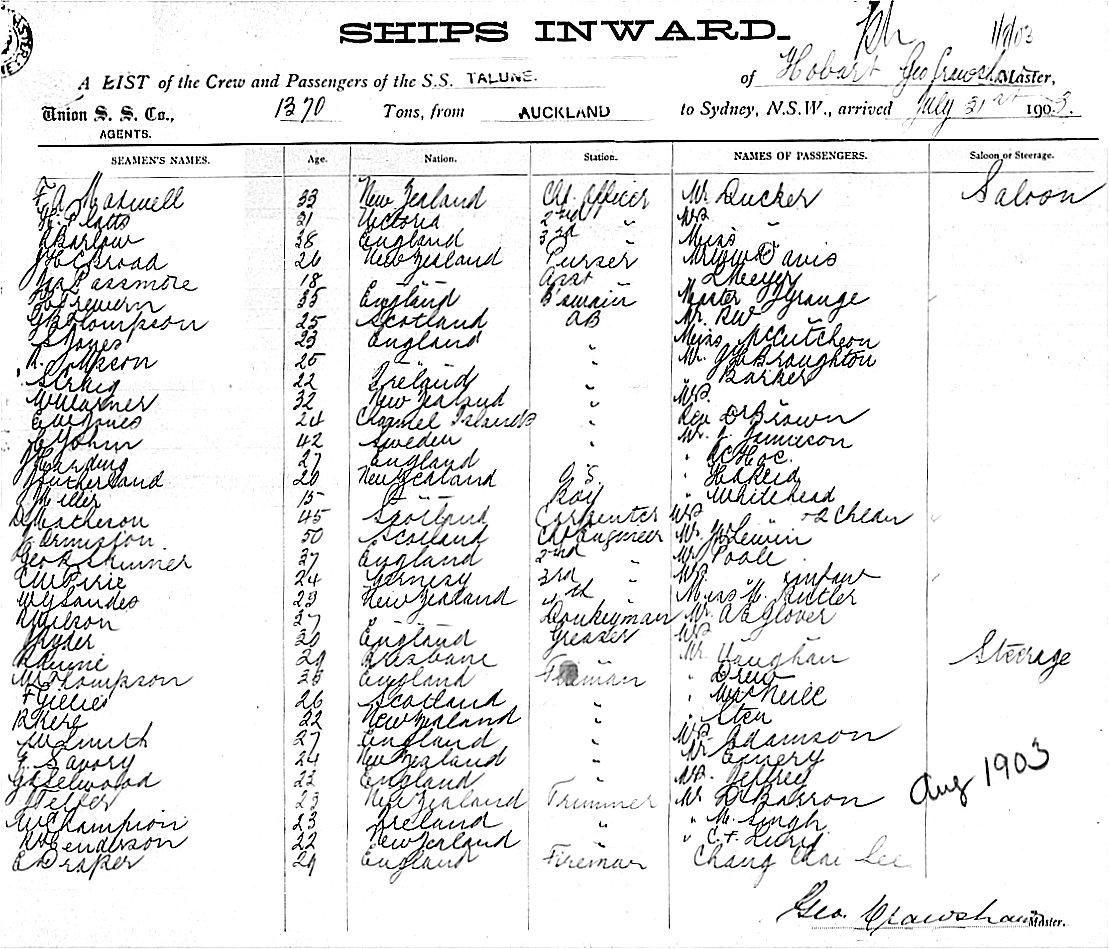 SHIPS INWARD.
1/8/03
A LIST of the Crew and Passengers of the S.S. TALUNE. of Hobart Geo Crawshaw Master,
Union S. S. Co., 1370 Tons, from AUCKLAND to Sydney, N.S.W., arrived July 31st 1903.
AGENTS.
SEAMEN'S NAMES. Age. Nation. Station. NAMES OF PASSENGERS. Saloon or Steerage.
33 New Zealand Chf. Officer Mr. Ducker Saloon
Platts 21 Victoria 2nd " Mrs
Barlow 28 England 3rd " Miss "
26 New Zealand Purser Davis
Passmore 18 Asst
Trewern 35 England B'swain Master Grange
Thompson 25 Scotland AB Mr.
Jones 23 England " Miss McCutcheon
25 " Mr. Broughton
22 Ireland " Barker
W Warner 32 New Zealand " Mrs.
E W Jones 24 Channel Islands " Rev Dr Brown
C John 42 Sweden " Mr. J. Jamieson
J Harding 27 England "
J Sutherland 20 New Zealand O.S. " Reid
J Miller 15 " Boy " Whitehead
D Matheson 45 Scotland Carpenter Mrs " +2 Chldn
J Ormiston 50 Scotland Chf Engineer Mr. Lewin
Geo R Skinner 37 England 2nd " Mr Poole
C W Pirie 24 3rd " Mrs " infant
W G Sandes 23 New Zealand Miss M. Butler
Wilson 37 " Donkeyman Mr. A E Glover
Ryder 30 England Greaser Mrs "
29 Brisbane " Mr. Vaughan Steerage
W Thompson 38 England Fireman " Drew
F Gillies 26 Scotland " " MacNeill
R Kere 22 New Zealand "
W Smith 27 England " Mrs. Adamson
E. Savory 24 New Zealand " Mr Emery
Hazelwood 22 England " Mrs. Jeffrey
Telfer 23 New Zealand Trimmer Mr D Barron
W Champion 23 Ireland " " M. Singh
Henderson 22 New Zealand " " C. F.
E Draper 29 England Fireman Chang Chai Lee
Aug 1903
Geo. Crawshaw Master.